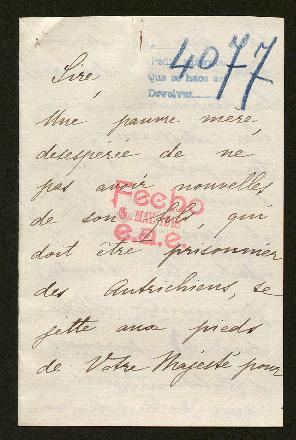 4077
Que se hace
Devolver
Sire,
Une pauvre mère,
desespérée de ne
pas avoir nouvelles
de son fils, qui
doit être prisonnier
des Autrichiens, se
jette aux pieds
de Votre Majesté pour
Fecho
MAY